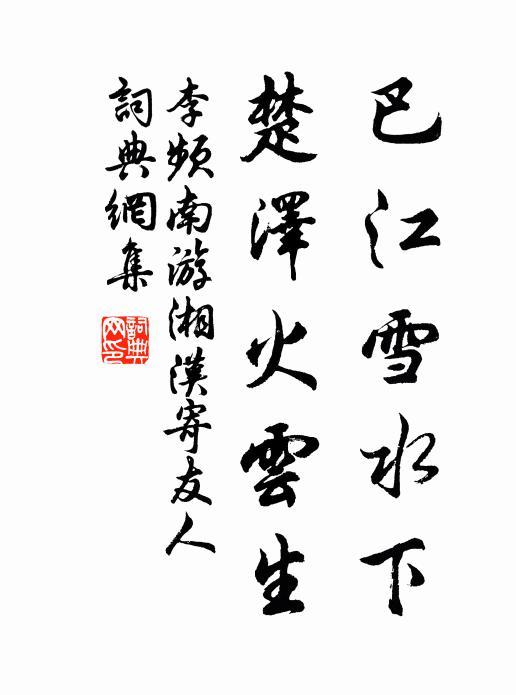 巴江雪水下
楚澤火雲生
李頻南游湘漢寄友人
詞典網集
詞典網印